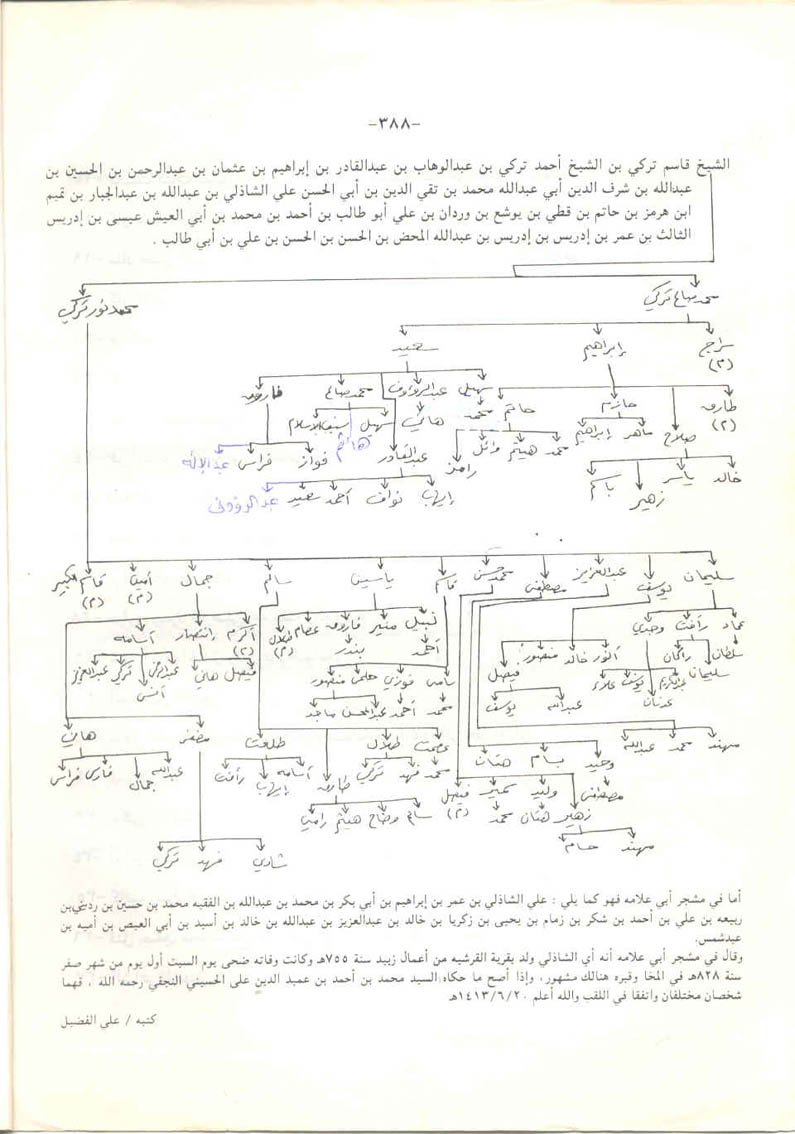 -٣٨٨-
الشيخ قاسم تركي بن الشيخ أحمد تركي بن عبدالوهاب بن عبدالقادر بن إبراهيم بن عثمان بن عبدالرحمن بن الحسين بن
عبدالله بن شرف الدين أبي عبدالله محمد بن تقي الدين بن أبي الحسن علي الشاذلي بن عبدالله بن عبدالجبار بن تميم
ابن هرمز بن حاتم بن قطي بن يوشع بن وردان بن علي أبو طالب بن أحمد بن محمد بن أبي العيش عيسى بن إدريس
الثالث بن عمر بن إدريس بن إدريس بن عبدالله المحض بن الحسن بن الحسن بن علي بن أبي طالب .
محمد صالح تركي محمد نور تركي
سراج إبراهيم سعيد
(م)
طارق حازم حاتم محمد سهيل عبدالرؤوف محمد صالح فاروق
(م) صلاح ماهر إبراهيم محمد هيثم وائل رامز هاني سهيل سيف الإسلام هاشم
عبدالقادر فواز فراس عبدالإله
خالد ياسر زهير باسم إيهاب نواف أحمد سعيد عبدالرؤوف
سليمان يوسف عبدالعزيز مصطفى محمد حسن قاسم ياسين سالم جمال أمين قاسم الكبير
(م) (م)
عماد رأفت وجدي أنور خالد منصور فيصل نبيل منير فاروق عصام طلال أكرم انتصار أسامه
(م) (م)
سلطان راكان سليمان عبدالكريم يوسف علاء عدنان عبدالله يوسف أحمد بندر فيصل هاني عبدالرحمن تركي عبدالعزيز أنس
سامي فوزي حلمي منصور
محمد أحمد عبدالمحسن ماجد
مهند محمد عبدالله وحيد بسام هتان عصمت طلال طلعت مظفر هاني
محمد فهد تركي طارق أسامه إيهاب رأفت عبدالله جمال فارس فراس
مصطفى وليد سمير فيصل
(م)
زهير هتان محمد سالم وضاح هيثم رامي
مهند حسام شادي فهد تركي
أما في مشجر أبي علامه فهو كما يلي : علي الشاذلي بن عمر بن إبراهيم بن أبي بكر بن محمد بن عبدالله بن الفقيه محمد بن حسين بن رديني بن
ربيعه بن علي بن أحمد بن شكر بن زمام بن يحيى بن زكريا بن خالد بن عبدالعزيز بن عبدالله بن خالد بن أسيد بن أبي العيص بن أميه بن
عبدشمس.
وقال في مشجر أبي علامه أنه أي الشاذلي ولد بقرية القرشيه من أعمال زبيد سنة ٧٥٥هـ وكانت وفاته ضحى يوم السبت أول يوم من شهر صفر
سنة ٨٢٨هـ في المخا وقبره هنالك مشهور، وإذا أصح ما حكاه السيد محمد بن أحمد بن عميد الدين على الحسيني النجفي رحمه الله ، فهما
شخصان مختلفان واتفقا في اللقب والله أعلم ١٤١٣/٦/٢٠هـ
كتبه / علي الفضيل